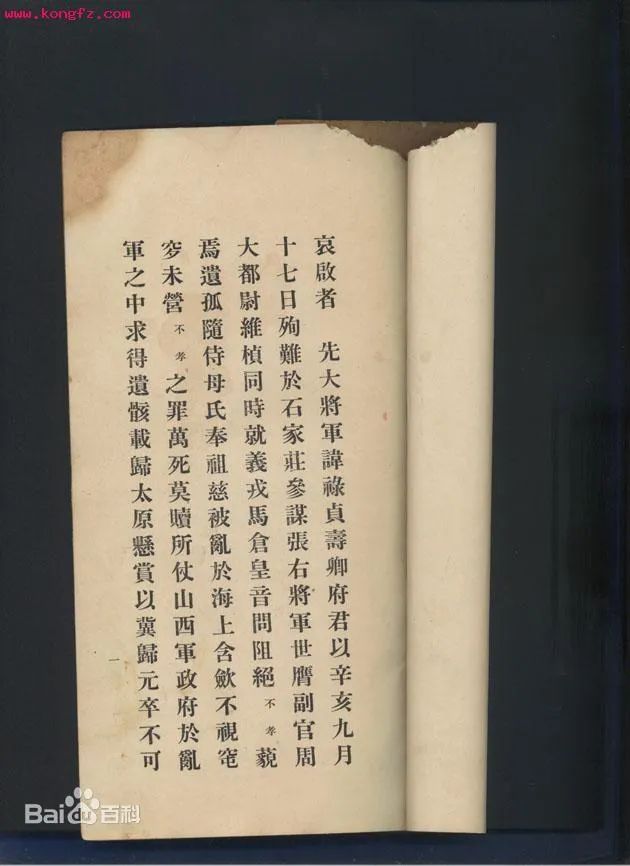 www.kongfz.com
哀啟者　先大將軍諱祿貞壽卿府君以辛亥九月
十七日殉難於石家莊參謀張右將軍世膺副官周
大都尉維楨同時就義戎馬倉皇音問阻絕不孝藐
焉遺孤隨侍母氏奉祖慈被亂於海上含歛不視窀
穸未營不孝之罪萬死莫贖所仗山西軍政府於亂
軍之中求得遺骸載歸太原懸賞以冀歸元卒不可
一
Bai百科